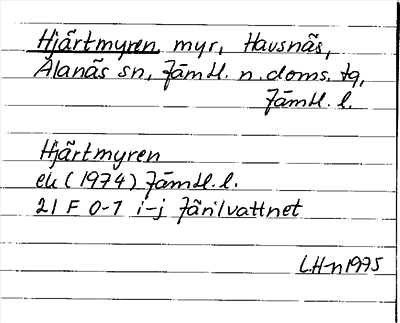 Hjärtmyren myr, Havsnäs,
Alanäs sn, Jämtl. n. doms. tg,
Jämtl. l.
Hjärtmyren
ek (1974) Jämtl. l.
21 F 0-1 i-j Järilvattnet
L.H-n 1975